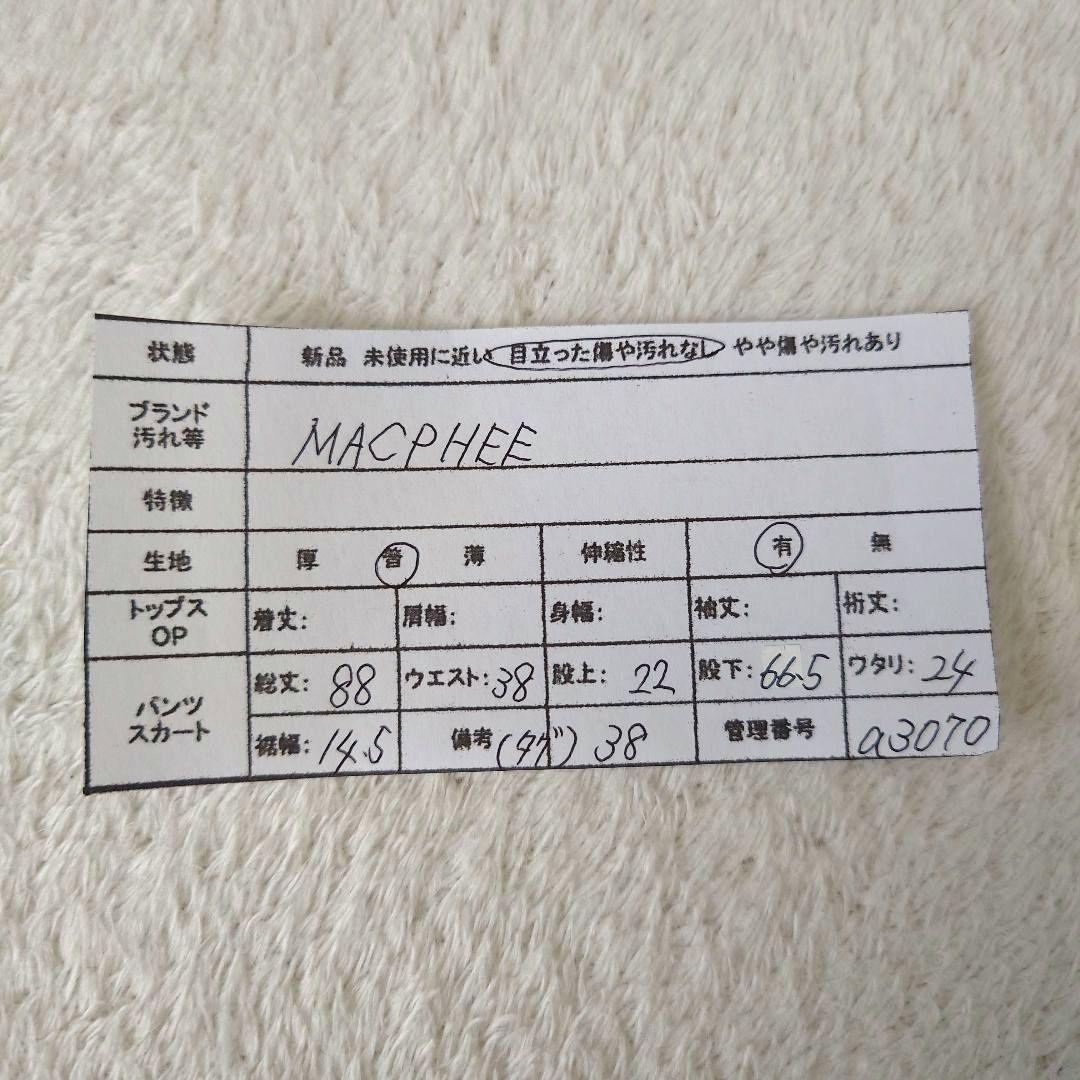 状態 新品 未使用に近い 目立った傷や汚れなし やや傷や汚れあり
ブランド
汚れ等
MACPHEE
特徴
生地 厚 普 薄 伸縮性 有 無
トップス
OP
着丈: 肩幅: 身幅: 袖丈: 裄丈:
パンツ
スカート
総丈: 88 ウエスト: 38 股上: 22 股下: 66.5 ワタリ: 24
裾幅: 14.5 備考 (タグ) 38 管理番号 a3070